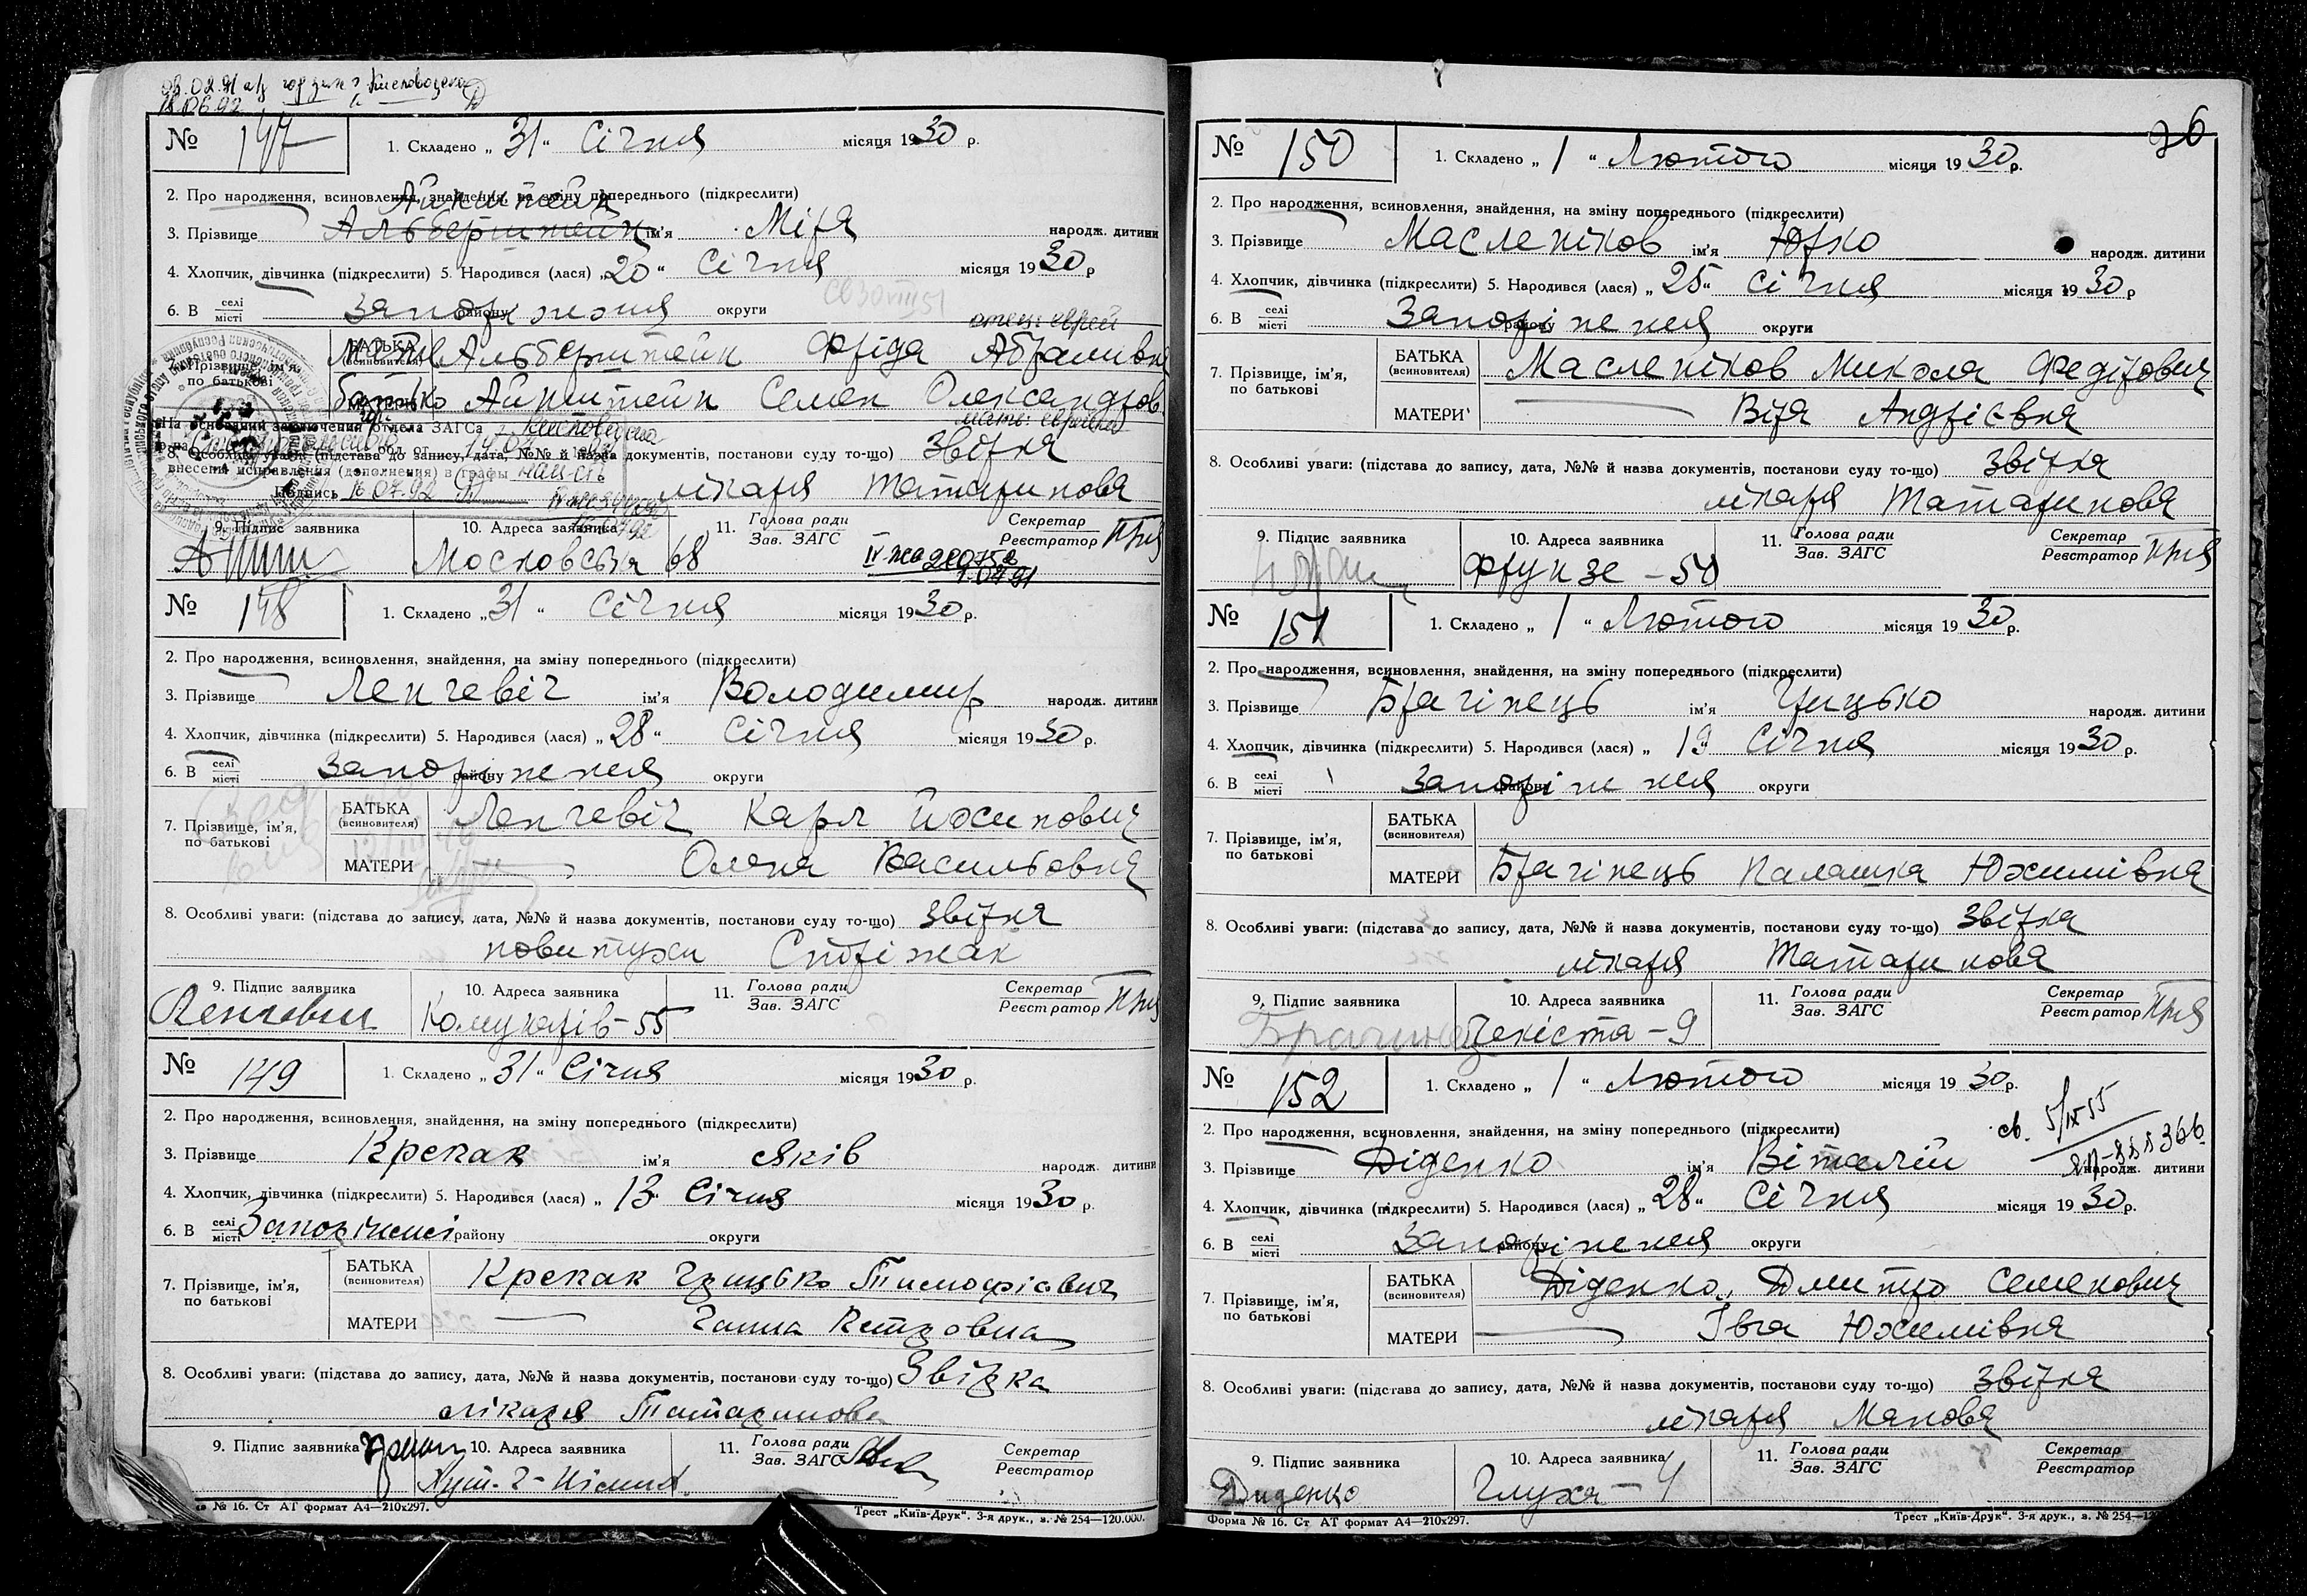 № 147 1. Складено „31“ Січня місяця 1930 р.
2. Про народження, всиновлення, знайдення, на зміну попереднього (підкреслити)
Айнштейн
3. Прізвище Альберштейн ім'я Міра народж. дитини
4. Хлопчик, дівчинка (підкреслити) 5. Народився (лася) „20“ Січня місяця 1930 р
6. В селі місті Запоріжжя району округи
отец: еврей
7. Прізвище, ім'я, по батькові БАТЬКА (всиновителя) Мати Альберштейн Фріда Абрамівна
МАТЕРИ батько Айнштейн Семен Олександров.
мать: еврейка
На основании заключения отдела ЗАГСа г. Кисловодска
8. Особливі уваги: (підстава до запису, дата, №№ й назва документів, постанови суду то-що) Звірка
внесены исправления (дополнения) в графы нац-сть
Подпись 16.07.92 лікаря Татаринова
9. Підпис заявника 10. Адреса заявника Московська 68 11. Голова ради Зав. ЗАГС Секретар Реєстратор
№ 148 1. Складено „31“ Січня місяця 1930 р.
2. Про народження, всиновлення, знайдення, на зміну попереднього (підкреслити)
3. Прізвище Ленчевіч ім'я Володимир народж. дитини
4. Хлопчик, дівчинка (підкреслити) 5. Народився (лася) „28“ Січня місяця 1930 р.
6. В селі місті Запоріжжя району округи
7. Прізвище, ім'я, по батькові БАТЬКА (всиновителя) Ленчевіч Карл Йосипович
МАТЕРИ — Олена Васильовна
8. Особливі уваги: (підстава до запису, дата, №№ й назва документів, постанови суду то-що) Звірка
повитухи Стріжак
9. Підпис заявника Ленчевич 10. Адреса заявника Комунарів-55 11. Голова ради Зав. ЗАГС Секретар Реєстратор
№ 149 1. Складено „31“ Січня місяця 1930 р.
2. Про народження, всиновлення, знайдення, на зміну попереднього (підкреслити)
3. Прізвище Крекак ім'я Яків народж. дитини
4. Хлопчик, дівчинка (підкреслити) 5. Народився (лася) „13“ Січня місяця 1930 р.
6. В селі місті Запоріжжі району округи
7. Прізвище, ім'я, по батькові БАТЬКА (всиновителя) Крекак Грицько Тимофієвич
МАТЕРИ — Ганна Петровна
8. Особливі уваги: (підстава до запису, дата, №№ й назва документів, постанови суду то-що) Звірка
лікаря Татаринова
9. Підпис заявника 10. Адреса заявника 11. Голова ради Зав. ЗАГС Секретар Реєстратор
№ 16. Ст АТ формат А4—210х297. Трест „Київ-Друк“. 3-я друк., з. № 254—120.000.
26
№ 150 1. Складено „1“ Лютого місяця 1930 р.
2. Про народження, всиновлення, знайдення, на зміну попереднього (підкреслити)
3. Прізвище Масленіков ім'я Юрко народж. дитини
4. Хлопчик, дівчинка (підкреслити) 5. Народився (лася) „25“ Січня місяця 1930 р
6. В селі місті Запоріжжя району округи
7. Прізвище, ім'я, по батькові БАТЬКА (всиновителя) Масленіков Микола Федірович
МАТЕРИ — Віра Андрієвна
8. Особливі уваги: (підстава до запису, дата, №№ й назва документів, постанови суду то-що) Звірка
лікаря Татаринова
9. Підпис заявника 10. Адреса заявника Фрунзе - 50 11. Голова ради Зав. ЗАГС Секретар Реєстратор
№ 151 1. Складено „1“ Лютого місяця 1930 р.
2. Про народження, всиновлення, знайдення, на зміну попереднього (підкреслити)
3. Прізвище Брагінець ім'я Грицько народж. дитини
4. Хлопчик, дівчинка (підкреслити) 5. Народився (лася) „19 Січня місяця 1930 р.
6. В селі місті Запоріжжя району округи
7. Прізвище, ім'я, по батькові БАТЬКА (всиновителя)
МАТЕРИ Брагінець Палашка Юхимівна
8. Особливі уваги: (підстава до запису, дата, №№ й назва документів, постанови суду то-що) Звірка
лікаря Татаринова
9. Підпис заявника 10. Адреса заявника Чекіста - 9 11. Голова ради Зав. ЗАГС Секретар Реєстратор
№ 152 1. Складено „1“ Лютого місяця 1930 р.
св. 5/IX 55
2. Про народження, всиновлення, знайдення, на зміну попереднього (підкреслити)
3. Прізвище Діденко ім'я Віталій народж. дитини
4. Хлопчик, дівчинка (підкреслити) 5. Народився (лася) „28“ Січня місяця 1930 р.
6. В селі місті Запоріжжя району округи
7. Прізвище, ім'я, по батькові БАТЬКА (всиновителя) Діденко Дмитро Семенович
МАТЕРИ — Івга Юхимівна
8. Особливі уваги: (підстава до запису, дата, №№ й назва документів, постанови суду то-що) Звірка
лікаря Манова
9. Підпис заявника Диденко 10. Адреса заявника Глуха - 4 11. Голова ради Зав. ЗАГС Секретар Реєстратор
Форма № 16. Ст АТ формат А4—210х297. Трест „Київ-Друк“. 3-я друк., з. № 254—